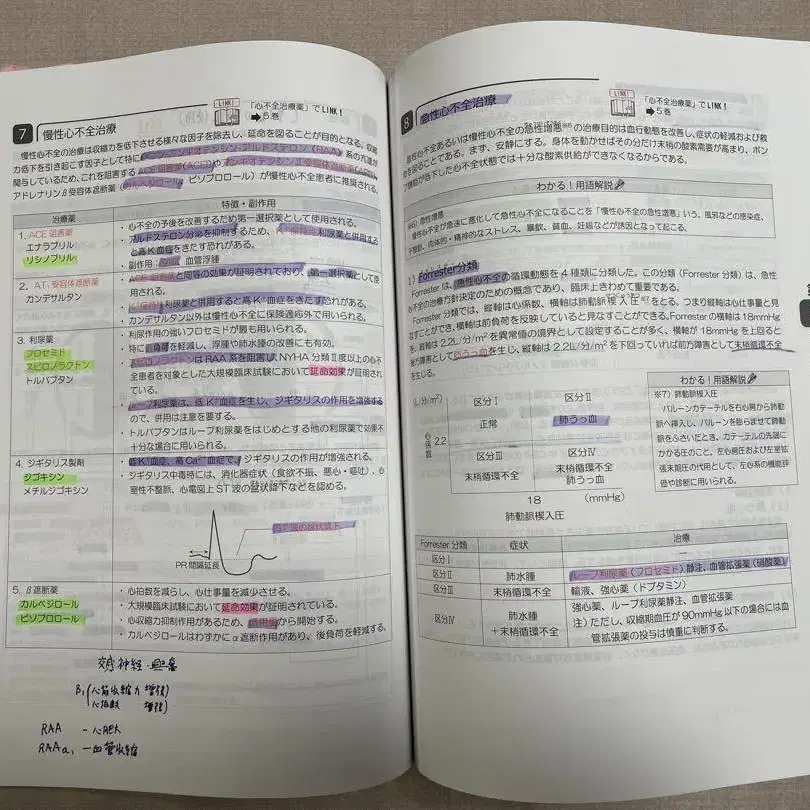 7 慢性心不全治療
LINK!
「心不全治療薬」でLINK!
➡5巻
慢性心不全の治療は収縮力を低下させる様々な因子を除去し、延命を図ることが目的となる。収縮
力低下を引き起こす因子として特にレニン-アンギオテンシン-アルドステロン(RAA)系の亢進が
関与しているため、これを阻害するACE阻害薬(ACEI)やアンギオテンシンⅡ受容体遮断薬(ARB)、
アドレナリンβ受容体遮断薬(カルベジロール、ビソプロロール)が慢性心不全患者に推奨される。
治療薬
特徴・副作用
1. ACE阻害薬
エナラプリル
リシノプリル
・心不全の予後を改善するため第一選択薬として使用される。
・アルドステロン分泌を抑制するため、K⁺保持性利尿薬と併用する
と高K⁺血症をきたす恐れがある。
・副作用:空咳、血管浮腫
2. AT₁受容体遮断薬
カンデサルタン
・ACE阻害薬と同等の効果が証明されており、第一選択薬として使
用される。
・K⁺保持性利尿薬と併用すると高K⁺血症をきたす恐れがある。
・カンデサルタン以外は慢性心不全に保険適応外で用いられる。
3. 利尿薬
フロセミド
スピロノラクトン
トルバプタン
・利尿作用の強いフロセミドが最も用いられる。
・特に前負荷を軽減し、浮腫や肺水腫の改善にも有効。
・スピロノラクトンはRAA系を阻害し、NYHA分類Ⅱ度以上の心不
全患者を対象とした大規模臨床試験において延命効果が証明され
ている。
・ループ利尿薬は、低K⁺血症を生じ、ジギタリスの作用を増強する
ので、併用は注意を要する。
・トルバプタンはループ利尿薬をはじめとする他の利尿薬で効果不
十分な場合に用いられる。
4. ジギタリス製剤
ジゴキシン
メチルジゴキシン
・低K⁺血症、高Ca²⁺血症で、ジギタリスの作用が増強される。
・ジギタリス中毒時には、消化器症状(食欲不振、悪心・嘔吐)、心
室性不整脈、心電図上ST波の盆状降下などを認める。
ST波の盆状降下
PR間隔延長
5. β遮断薬
カルベジロール
ビソプロロール
・心拍数を減らし、心仕事量を減少させる。
・大規模臨床試験において延命効果が証明されている。
・心収縮力抑制作用があるため、低用量から開始する。
・カルベジロールはわずかにα遮断作用があり、後負荷を軽減する。
交感神経・興奮
β₁(心筋収縮力 増強)
心拍数 増強)
RAA - 心肥大
RAA α₁ - 血管収縮
8 急性心不全治療
LINK!
「心不全治療薬」でLINK!
➡5巻
急性心不全あるいは慢性心不全の急性増悪の治療目的は血行動態を改善し、症状の軽減および救
命を図ることである。まず、安静にする。身体を動かせばその分だけ末梢の酸素需要が高まり、ポン
プ機能が低下した心不全状態では十分な酸素供給ができなくなるからである。
わかる!用語解説
※6)急性増悪
慢性心不全が急速に悪化して急性心不全になることを「慢性心不全の急性増悪」いう。風邪などの感染症、
不整脈、肉体的・精神的なストレス、暴飲、貧血、妊娠などが誘因となって起こる。
1)Forrester分類
Forresterは、急性心不全の循環動態を4種類に分類した。この分類(Forrester分類)は、急性
心不全の治療方針決定のための概念であり、臨床上きわめて重要である。
Forrester分類では、縦軸は心係数、横軸は肺動脈楔入圧をとる。つまり縦軸は心仕事量と見
なすことができ、横軸は前負荷を反映していると見なすことができる。Forresterの横軸は18mmHg
を、縦軸は2.2L/分/m²を異常値の境界として設定することが多く、横軸が18mmHgを上回ると
後方障害として肺うっ血を生じ、縦軸は2.2L/分/m²を下回っていれば前方障害として末梢循環不全
を生じる。
(L/分/m²)
心係数
2.2
区分Ⅰ
正常
区分Ⅱ
肺うっ血
区分Ⅲ
末梢循環不全
区分Ⅳ
末梢循環不全
肺うっ血
18
(mmHg)
肺動脈楔入圧
わかる!用語解説
※7)肺動脈楔入圧
バルーンカテーテルを右心房から肺動
脈へ挿入し、バルーンを膨らませて肺動
脈をふさいだとき、カテーテルの先端に
かかる圧のこと。左心房圧および左室拡
張末期圧の代用として、左心系の機能評
価や診断に用いられる。
Forrester分類
症状
治療
区分Ⅰ
—
区分Ⅱ
肺水腫
ループ利尿薬(フロセミド)静注、血管拡張薬(硝酸薬)
区分Ⅲ
末梢循環不全
輸液、強心薬(ドブタミン)
区分Ⅳ
肺水腫
+末梢循環不全
強心薬、ループ利尿薬静注、血管拡張薬
注)ただし、収縮期血圧が90mmHg以下の場合には血
管拡張薬の投与は慎重に判断する。